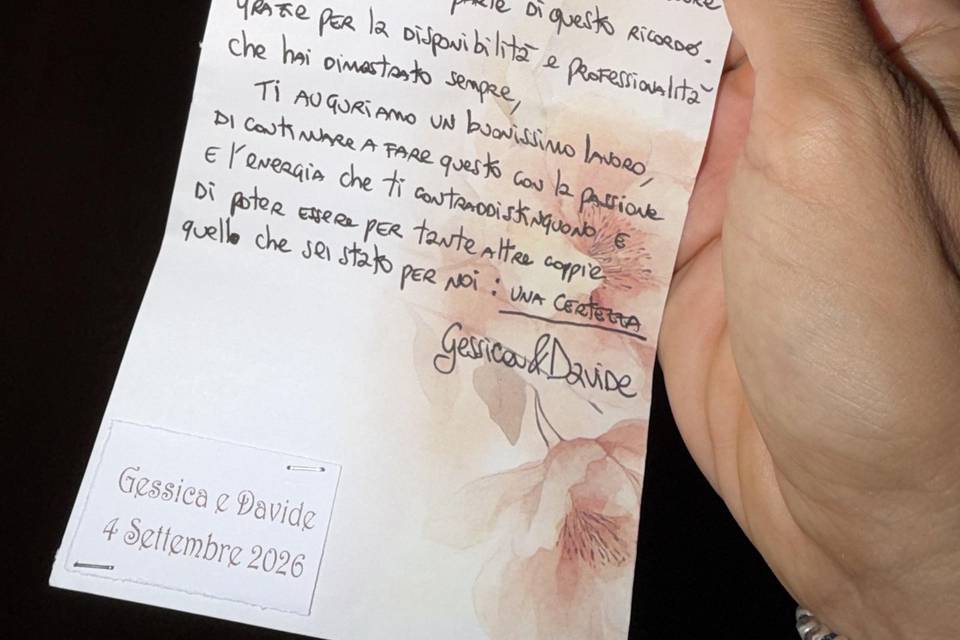 PARTE DI questo RICORDO.
GRAZIE PER la DISPONIBILITÀ e PROFESSIONALITÀ
che hai DIMOSTRATO sempre,
TI AUGURIAMO UN buonissimo lavoro,
DI CONTINUARE A FARE questo con la PASSIONE
E l'ENERGIA che ti CONTRADDISTINGUONO E
DI poter ESSERE PER tante Altre coppie
quello che sei stato PER NOI: UNA CERTEZZA
Gessica&Davide
Gessica e Davide
4 Settembre 2026